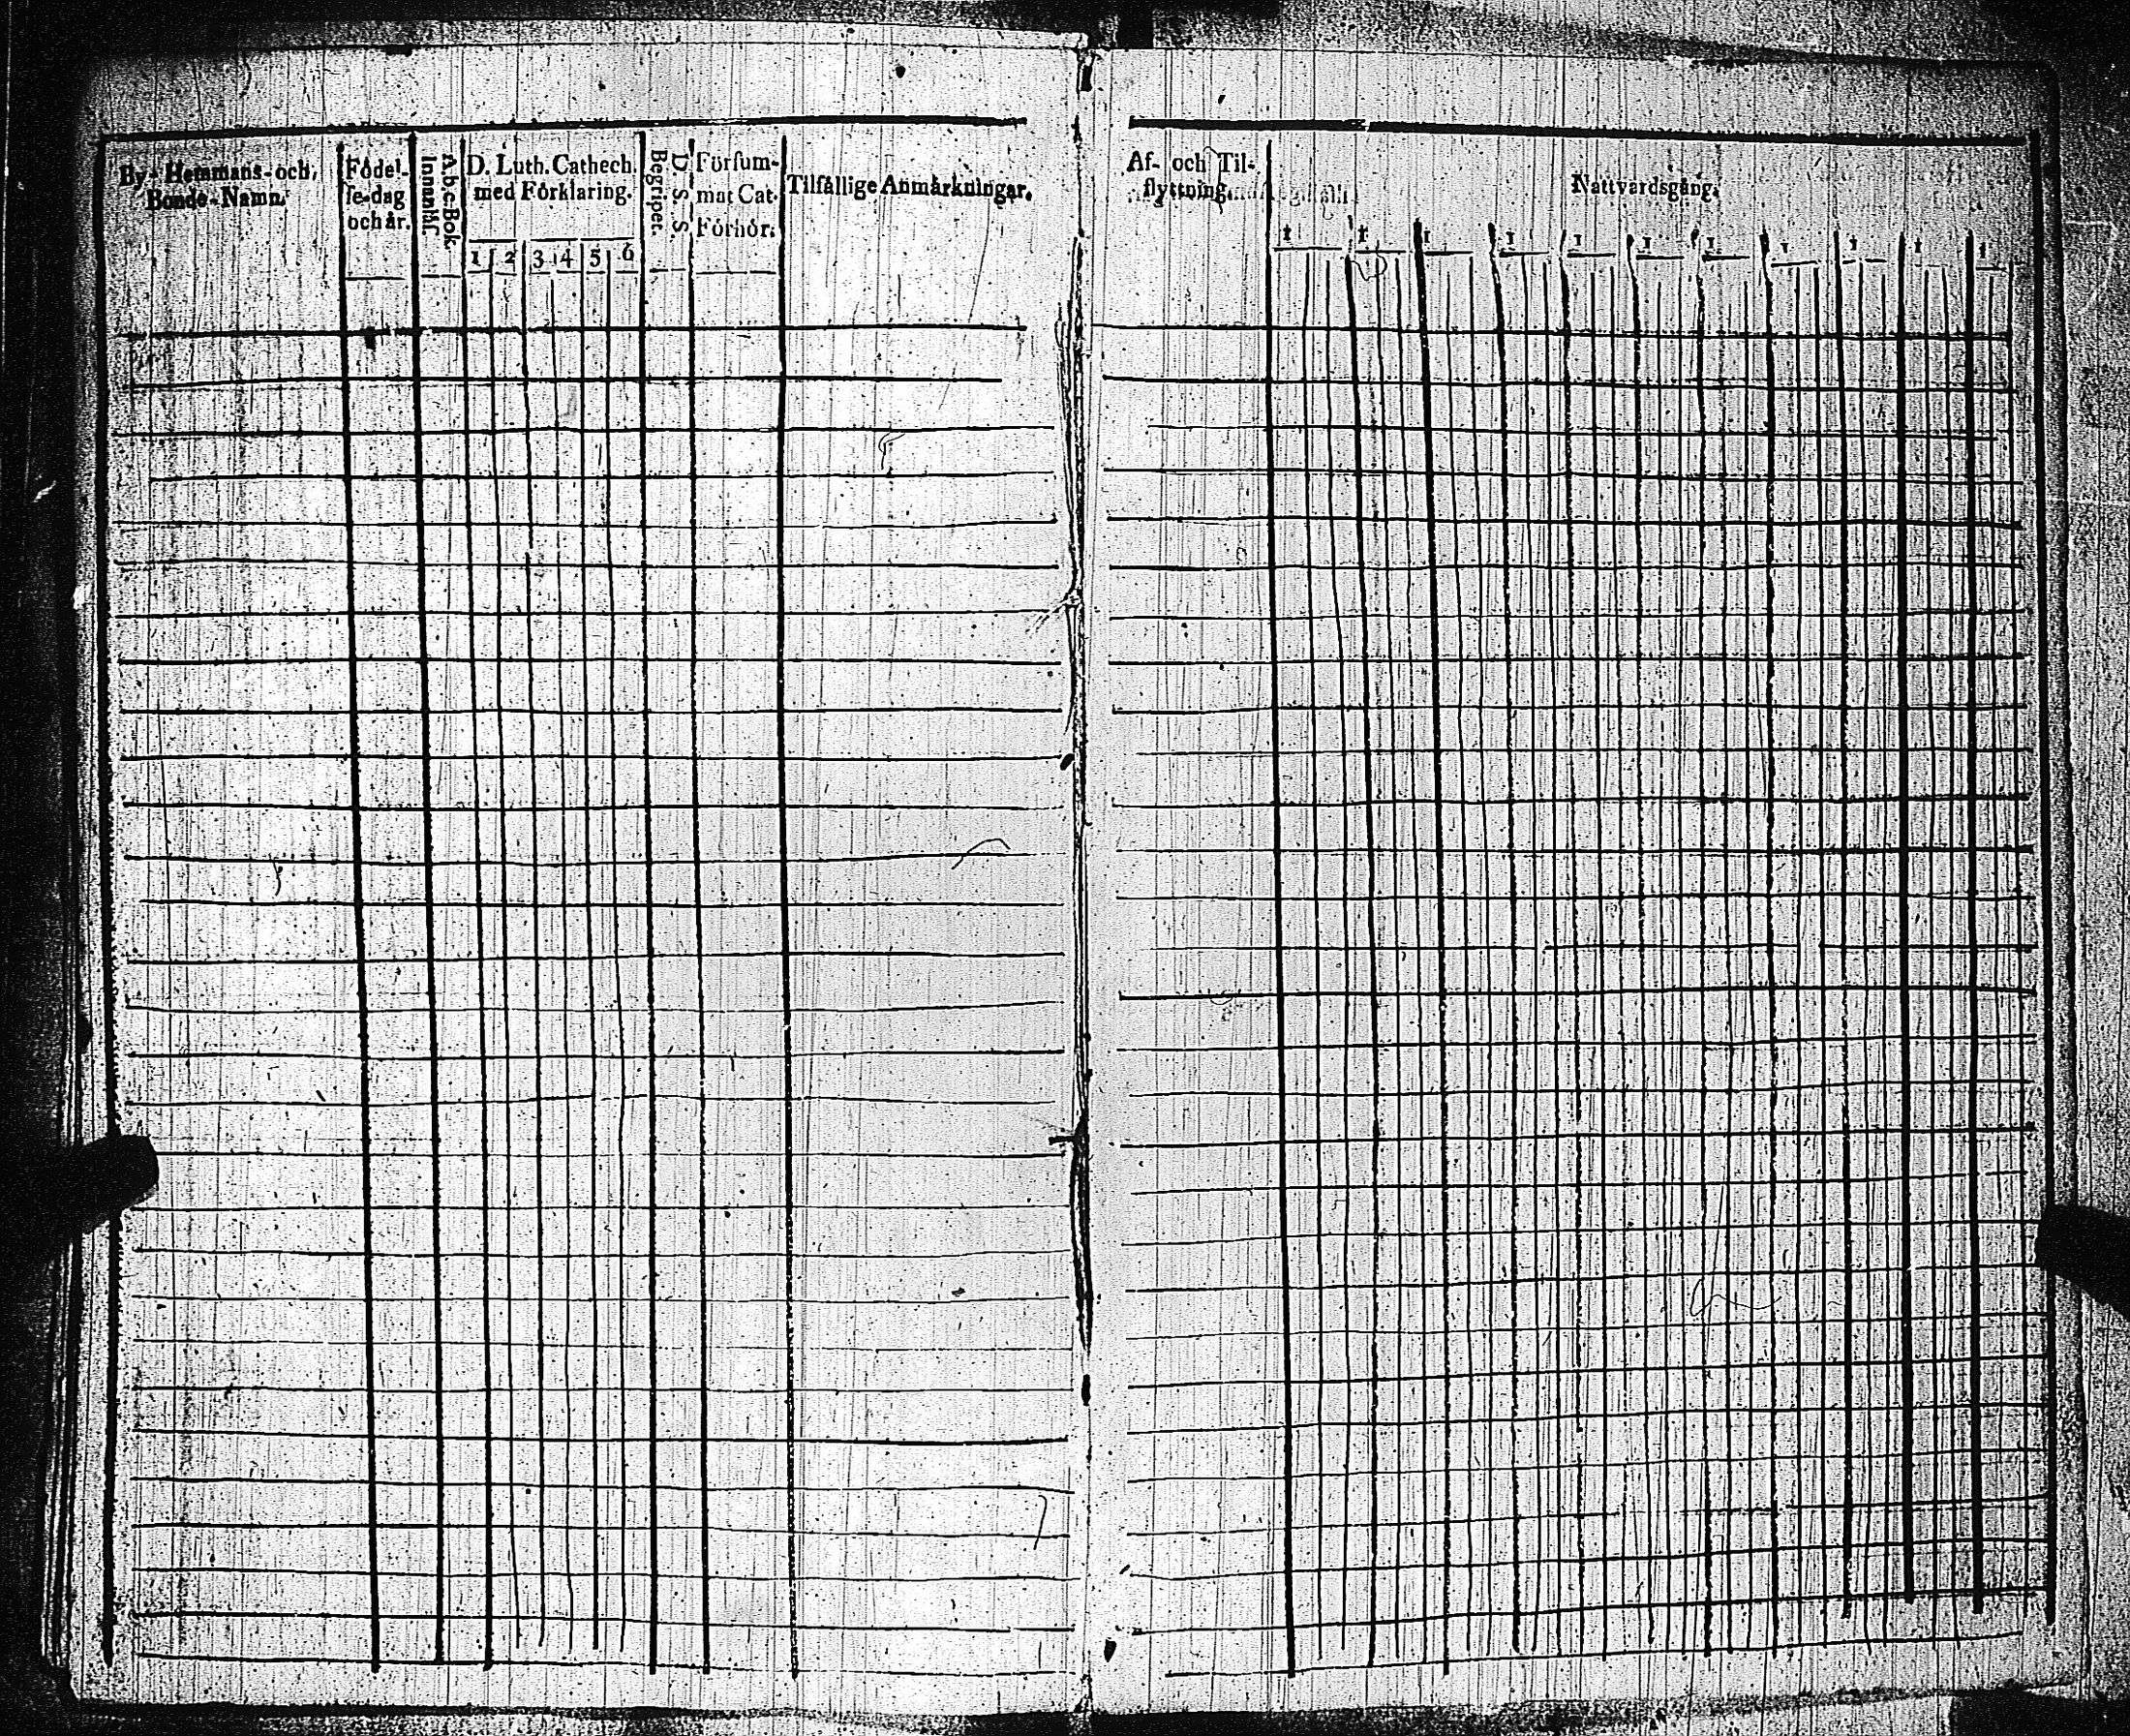 By- Hemmans- och
Bonde-Namn.
Födel-
se-dag
och år.
A.b.c.Bok
Innanläs.
D. Luth. Cathech.
med Förklaring.
1 2 3 4 5 6
D. S. S.
Begriper.
Försum-
mat Cat.
Förhör.
Tilfällige Anmärkningar.
Af- och Til-
flyttning.
Nattvardsgång.
1 1 1 1 1 1 1 1 1 1 1